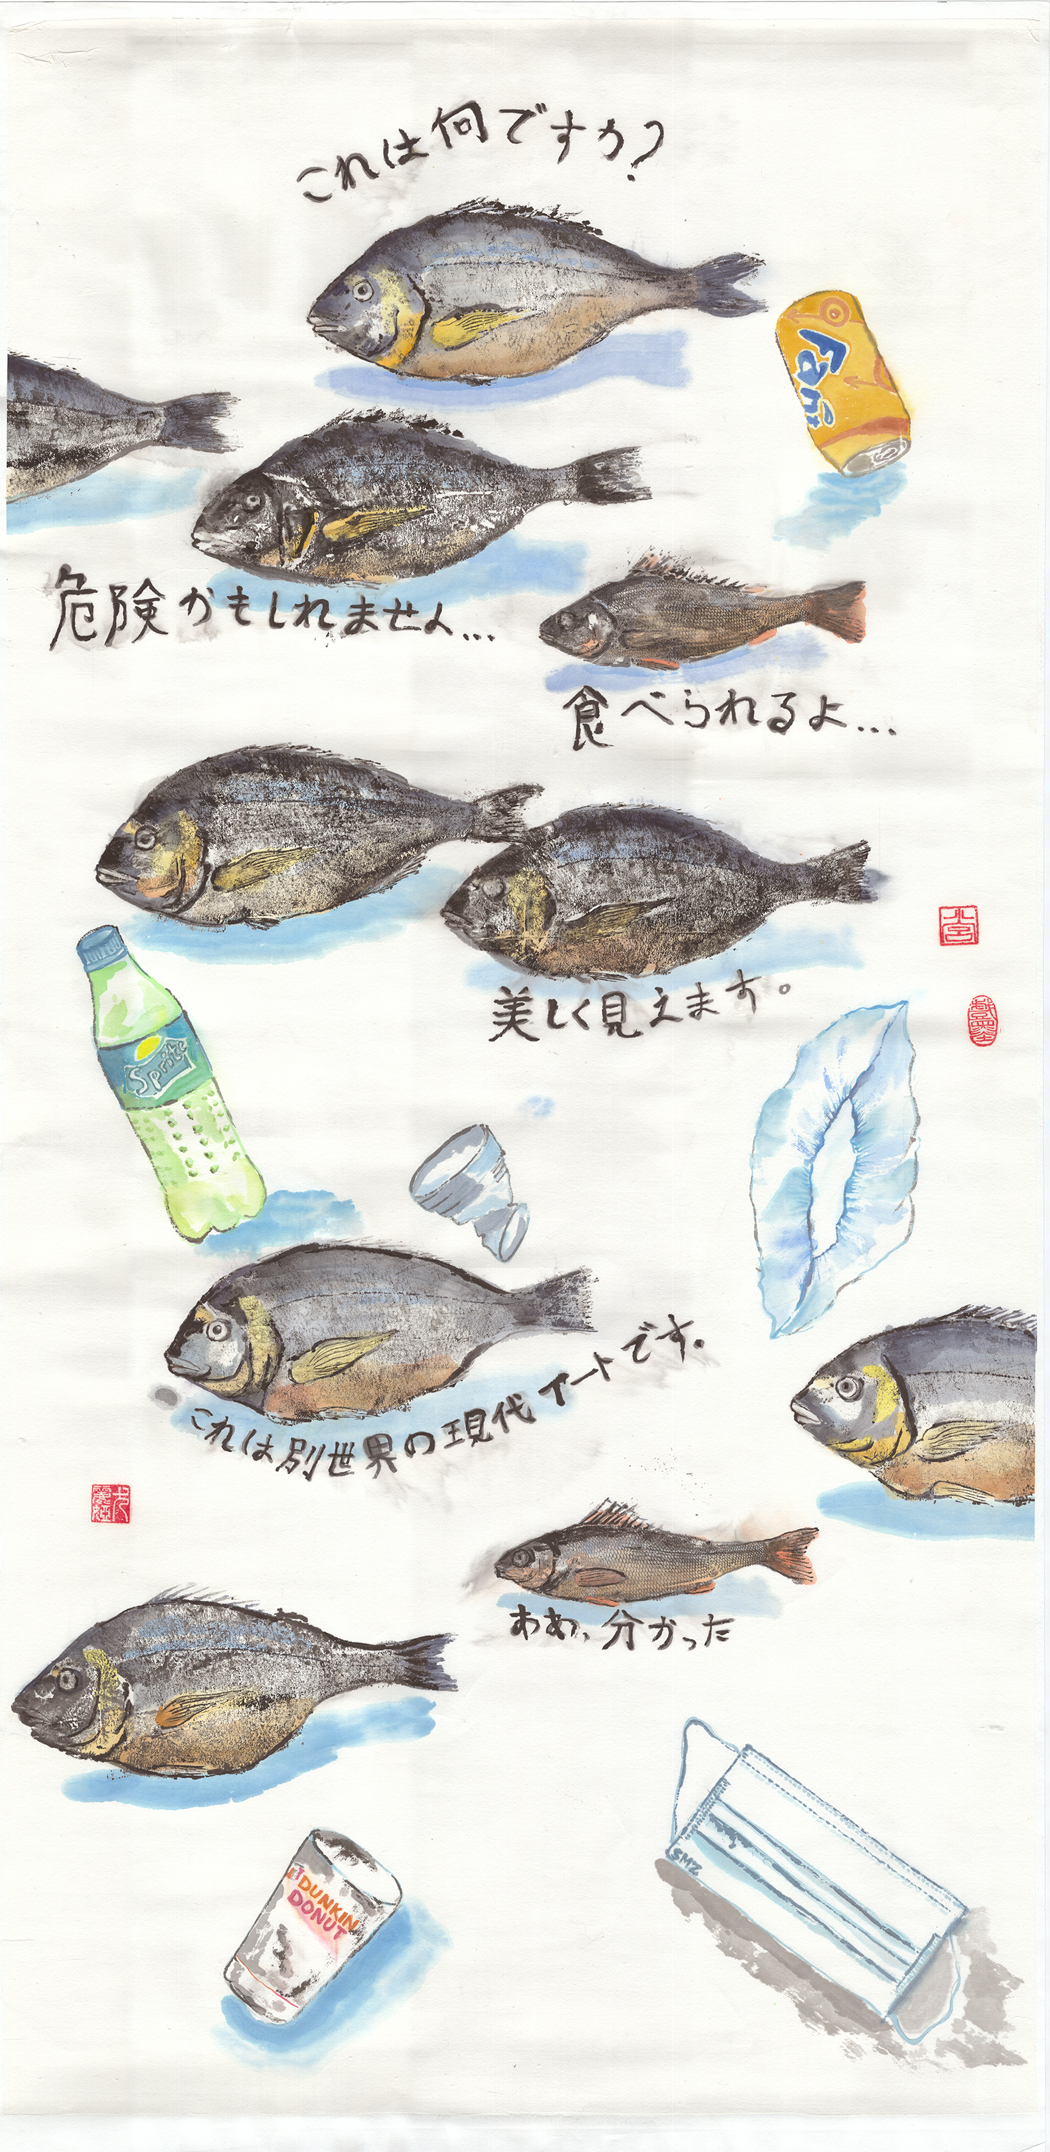 これは何ですか?
Fan
危険かもしれません...
食べられるよ...
美しく見えます。
Sprite
これは別世界の現代アートです。
ああ、分かった
SMZ
DUNKIN
DONUT